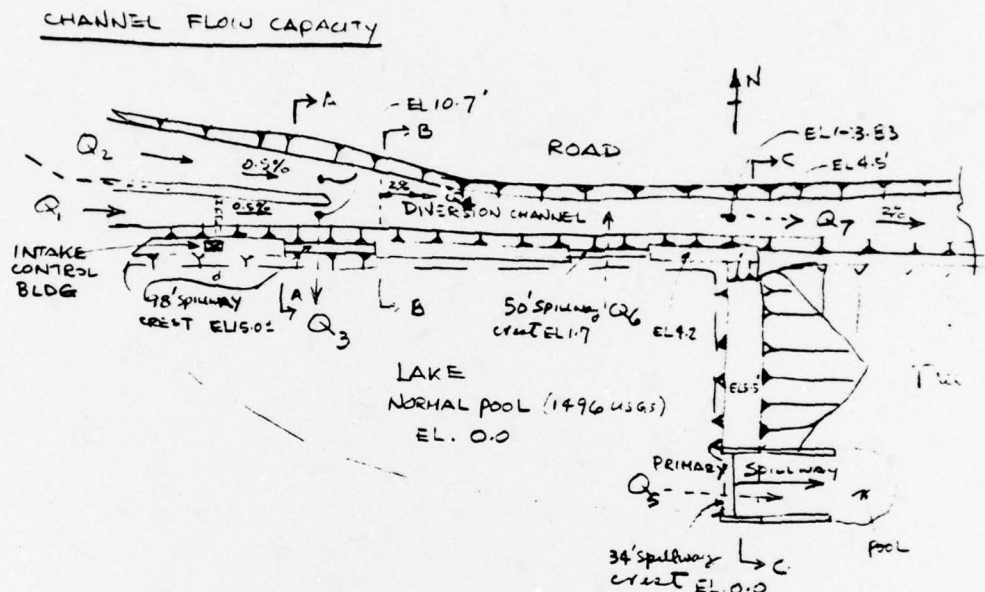 CHANNEL FLOW CAPACITY
A
EL 10.7'
B
N
ROAD
EL 4.5'
C
Q2
0.5%
2%
Q1
0.5%
DIVERSION CHANNEL
Q7
2%
INTAKE
CONTROL
BLDG
98' SPILLWAY
CREST EL 15.0±
A
Q3
B
50' Spillway Q6
crest EL 1.7
EL 4.2
LAKE
NORMAL POOL (1496 USGS)
EL. 0.0
PRIMARY SPILLWAY
Q5
POOL
34' Spillway
crest EL 0.0
C